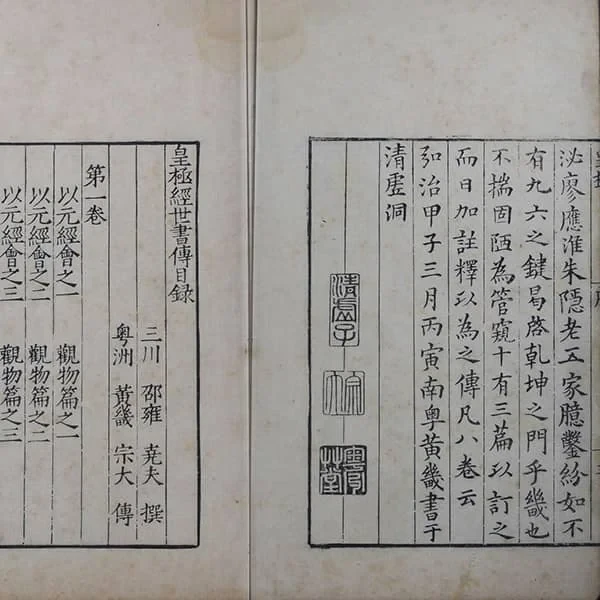 泌廖應淮朱隱老五家臆鑿紛如不
有九六之鍵曷啓乾坤之門乎畿也
不揣固陋為管窺十有三篇以訂之
而日加註釋以為之傳凡八卷云
弘治甲子三月丙寅南粤黃畿書于
清虛洞
清虛子
皇極經世書傳目錄
三川 邵雍 堯夫 撰
粤洲 黃畿 宗大 傳
第一卷
以元經會之一 觀物篇之一
以元經會之二 觀物篇之二
以元經會之三 觀物篇之三